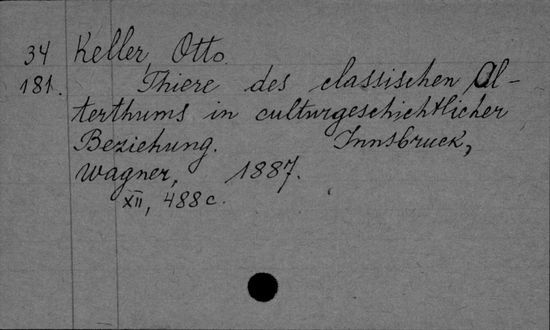 34 Keller, Otto.
181. Thiere des classischen Al-
terthums in culturgeschichtlicher
Beziehung. Innsbruck,
Wagner, 1887.
XII, 488 c.